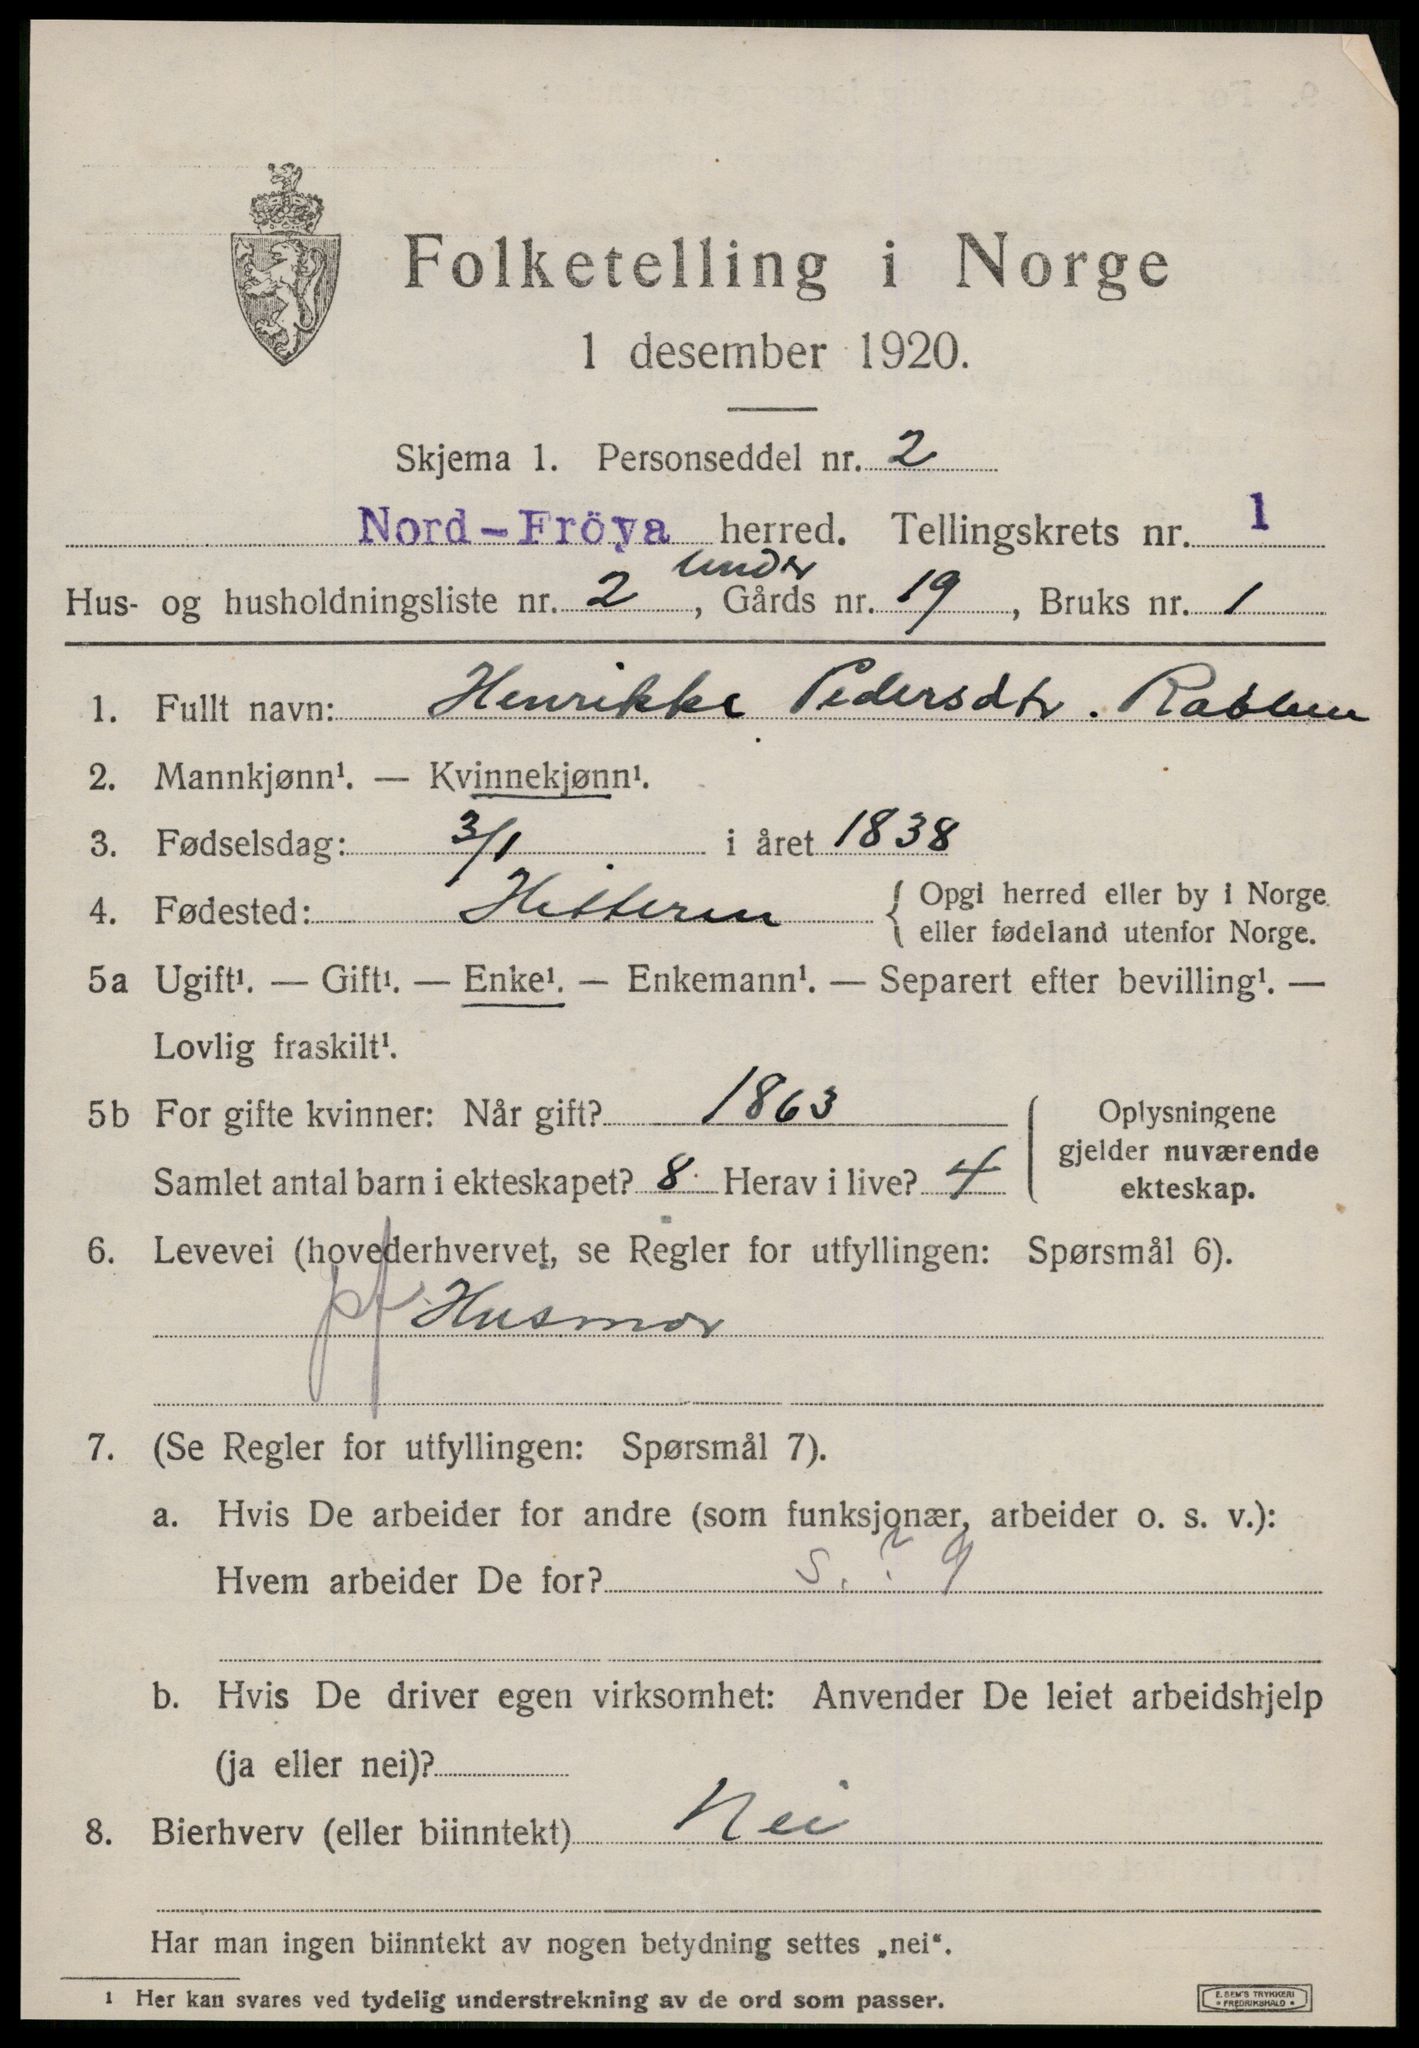 Folketelling i Norge
1 desember 1920.
Skjema 1. Personseddel nr. 2
Nord-Fröya herred. Tellingskrets nr. 1
under
Hus- og husholdningsliste nr. 2, Gårds nr. 19, Bruks nr. 1
1. Fullt navn: Henrikke Pedersdtr. Rabben
2. Mannkjønn¹. — Kvinnekjønn¹.
3. Fødselsdag: 3/1 i året 1838
4. Fødested: Hitteren { Opgi herred eller by i Norge
eller fødeland utenfor Norge.
5a Ugift¹. — Gift¹. — Enke¹. — Enkemann¹. — Separert efter bevilling¹. —
Lovlig fraskilt¹.
5b For gifte kvinner: Når gift? 1863
Samlet antal barn i ekteskapet? 8 Herav i live? 4
Oplysningene
gjelder nuværende
ekteskap.
6. Levevei (hovederhvervet, se Regler for utfyllingen: Spørsmål 6).
pf Husmor
7. (Se Regler for utfyllingen: Spørsmål 7).
a. Hvis De arbeider for andre (som funksjonær, arbeider o. s. v.):
Hvem arbeider De for? s. ? 9
b. Hvis De driver egen virksomhet: Anvender De leiet arbeidshjelp
(ja eller nei)?
8. Bierhverv (eller biinntekt) Nei
Har man ingen biinntekt av nogen betydning settes „nei“.
1 Her kan svares ved tydelig understrekning av de ord som passer.
E. SEM'S TRYKKERI
• FREDRIKSHALD •